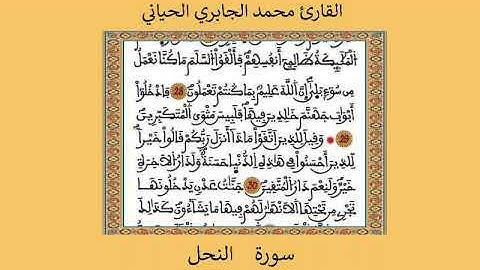 القارئ محمد الجابري الحياني
الْمَلَٰٓئِكَةُ ظَالِمِےٓ أَنفُسِهِمْ فَأَلْقَوُاْ اُلسَّلَمَ مَا كُنَّا نَعْمَلُ
مِن سُوٓءِۢ بَلَىٰٓ إِنَّ اَللَّهَ عَلِيمُۢ بِمَا كُنتُمْ تَعْمَلُونَ 28 فَادْخُلُوٓاْ
أَبْوَٰبَ جَهَنَّمَ خَٰلِدِينَ فِيهَا فَلَبِيسَ مَثْوَى اَلْمُتَكَبِّرِينَ
29 وَقِيلَ لِلذِينَ اَتَّقَوْاْ مَاذَآ أَنزَلَ رَبُّكُمْ قَالُواْ خَيْراٗ
لِّلذِينَ أَحْسَنُواْ فِے هَٰذِهِ اِلدُّنْيَا حَسَنَةٞ وَلَدَارُ اُلَاخِرَةِ
خَيْرٞ وَلَنِعْمَ دَارُ اُلْمُتَّقِينَ 30 جَنَّٰتُ عَدْنٖ يَدْخُلُونَهَا
تَجْرِے مِن تَحْتِهَا اَلَانْهَٰرُ لَهُمْ فِيهَا مَا يَشَآءُونَ كَذَٰلِكَ
سورة النحل